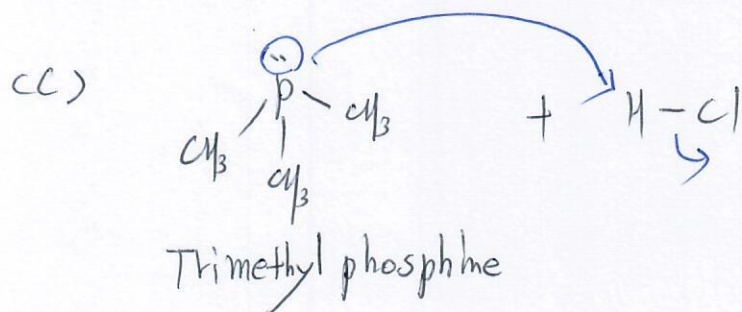 (C)
P
CH3
CH3
CH3
+ H - Cl
Trimethyl phosphine